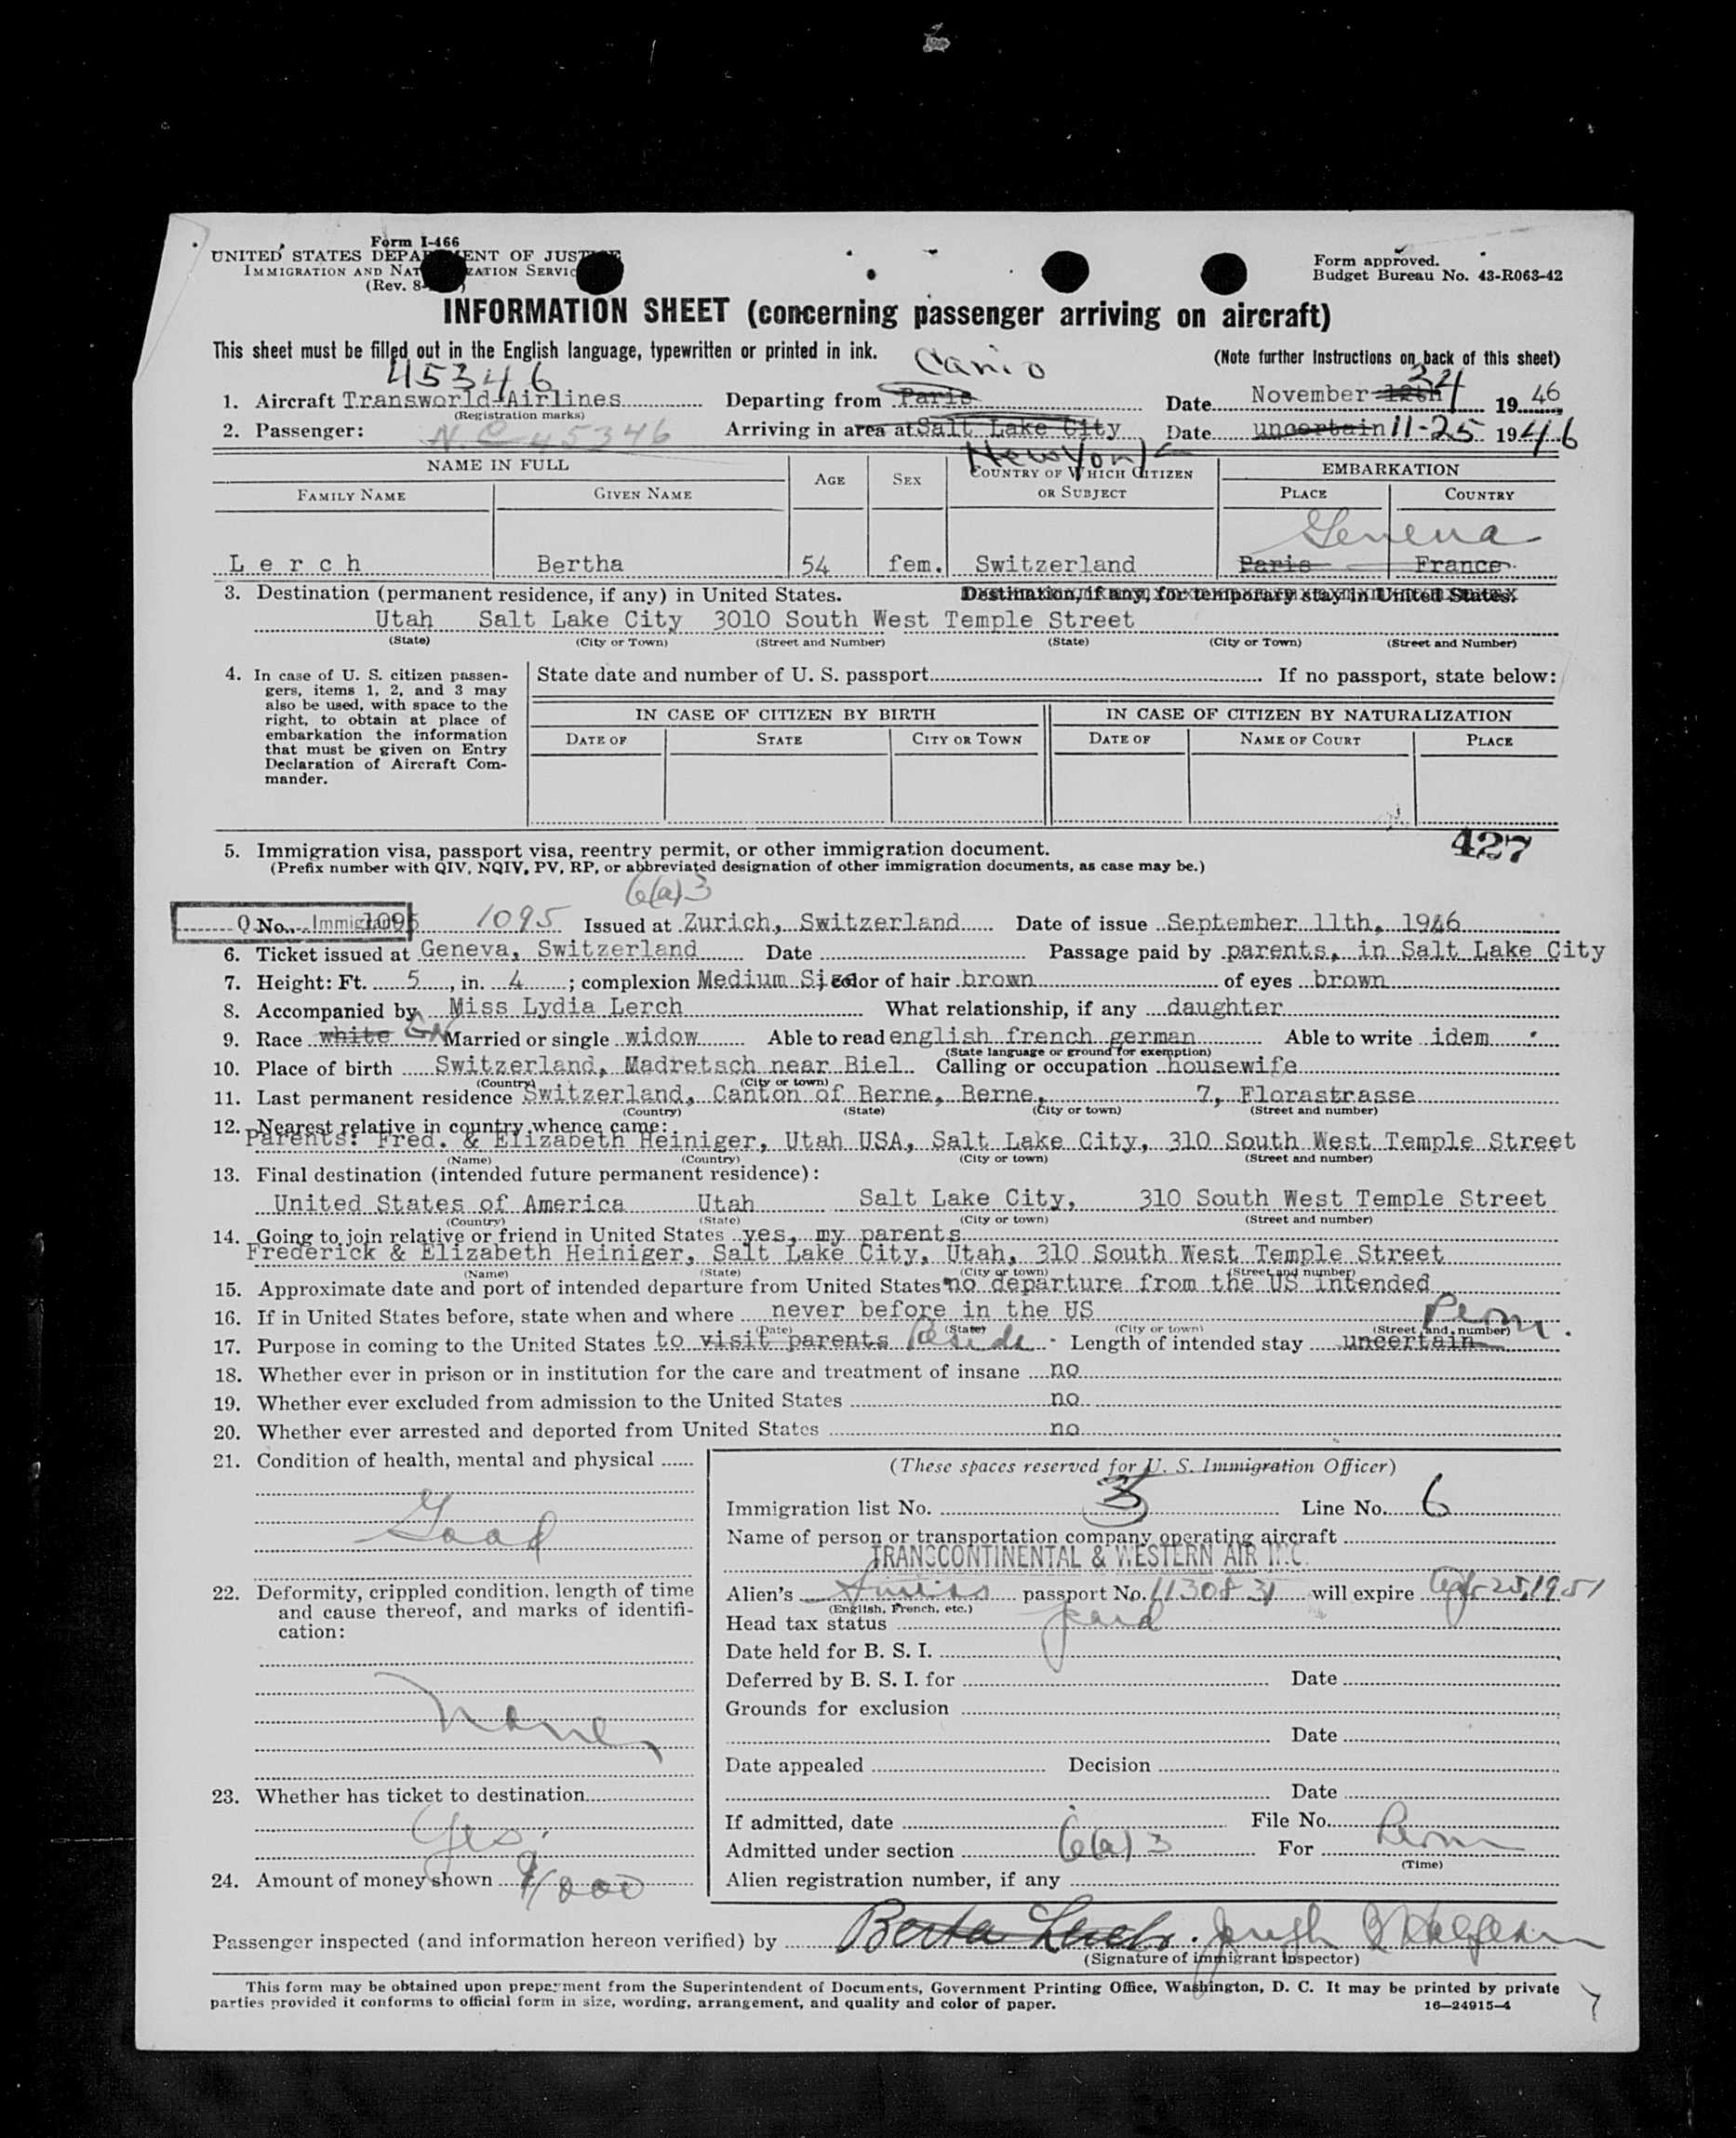 Form I-466
UNITED STATES DEPARTMENT OF JUSTICE
IMMIGRATION AND NATURALIZATION SERVICE
(Rev. 8-
Form approved.
Budget Bureau No. 43-R063-42
INFORMATION SHEET (concerning passenger arriving on aircraft)
This sheet must be filled out in the English language, typewritten or printed in ink.
(Note further instructions on back of this sheet)
45346 Cario 24
1. Aircraft Transworld Airlines Departing from Paris Date November 12th 1946
(Registration marks)
2. Passenger: NC 45346 Arriving in area at Salt Lake City Date uncertain 11-25 1946
New York
NAME IN FULL AGE SEX COUNTRY OF WHICH CITIZEN OR SUBJECT EMBARKATION
FAMILY NAME GIVEN NAME PLACE COUNTRY
Geneva
Lerch Bertha 54 fem. Switzerland Paris France
3. Destination (permanent residence, if any) in United States. Destination, if any, for temporary stay in United States.
Utah Salt Lake City 3010 South West Temple Street
(State) (City or Town) (Street and Number) (State) (City or Town) (Street and Number)
4. In case of U. S. citizen passen-
gers, items 1, 2, and 3 may
also be used, with space to the
right, to obtain at place of
embarkation the information
that must be given on Entry
Declaration of Aircraft Com-
mander.
State date and number of U. S. passport If no passport, state below:
IN CASE OF CITIZEN BY BIRTH IN CASE OF CITIZEN BY NATURALIZATION
DATE OF STATE CITY OR TOWN DATE OF NAME OF COURT PLACE
427
5. Immigration visa, passport visa, reentry permit, or other immigration document.
(Prefix number with QIV, NQIV, PV, RP, or abbreviated designation of other immigration documents, as case may be.)
6(a)3
Q No. Immig 1095 1095 Issued at Zurich, Switzerland Date of issue September 11th, 1946
6. Ticket issued at Geneva, Switzerland Date Passage paid by parents, in Salt Lake City
7. Height: Ft. 5, in. 4; complexion Medium Size; color of hair brown of eyes brown
8. Accompanied by Miss Lydia Lerch What relationship, if any daughter
9. Race white Married or single widow Able to read english french german Able to write idem
(State language or ground for exemption)
10. Place of birth Switzerland, Madretsch near Biel. Calling or occupation housewife
(Country) (City or town)
11. Last permanent residence Switzerland, Canton of Berne, Berne, 7, Florastrasse
(Country) (State) (City or town) (Street and number)
12. Nearest relative in country whence came:
Parents: Fred. & Elizabeth Heiniger, Utah USA, Salt Lake City, 310 South West Temple Street
(Name) (Country) (City or town) (Street and number)
13. Final destination (intended future permanent residence):
United States of America Utah Salt Lake City, 310 South West Temple Street
(Country) (State) (City or town) (Street and number)
14. Going to join relative or friend in United States yes, my parents
Frederick & Elizabeth Heiniger, Salt Lake City, Utah, 310 South West Temple Street
(Name) (State) (City or town) (Street and number)
15. Approximate date and port of intended departure from United States no departure from the US intended
16. If in United States before, state when and where never before in the US
(Date) (State) (City or town) (Street and number)
Perm.
17. Purpose in coming to the United States to visit parents Reside Length of intended stay uncertain
18. Whether ever in prison or in institution for the care and treatment of insane no
19. Whether ever excluded from admission to the United States no
20. Whether ever arrested and deported from United States no
21. Condition of health, mental and physical
Good
22. Deformity, crippled condition, length of time
and cause thereof, and marks of identifi-
cation:
None
23. Whether has ticket to destination
Yes.
24. Amount of money shown $1000
(These spaces reserved for U. S. Immigration Officer)
Immigration list No. 3 Line No. 6
Name of person or transportation company operating aircraft
TRANSCONTINENTAL & WESTERN AIR INC.
Alien's Swiss passport No. will expire 25, 1951
(English, French, etc.)
Head tax status paid
Date held for B. S. I.
Deferred by B. S. I. for Date
Grounds for exclusion
Date
Date appealed Decision
Date
If admitted, date File No.
Admitted under section 6(a)3 For Perm
(Time)
Alien registration number, if any
Passenger inspected (and information hereon verified) by Berta Lerch. Joseph
(Signature of immigrant inspector)
This form may be obtained upon prepayment from the Superintendent of Documents, Government Printing Office, Washington, D. C. It may be printed by private
parties provided it conforms to official form in size, wording, arrangement, and quality and color of paper. 16—24915-4